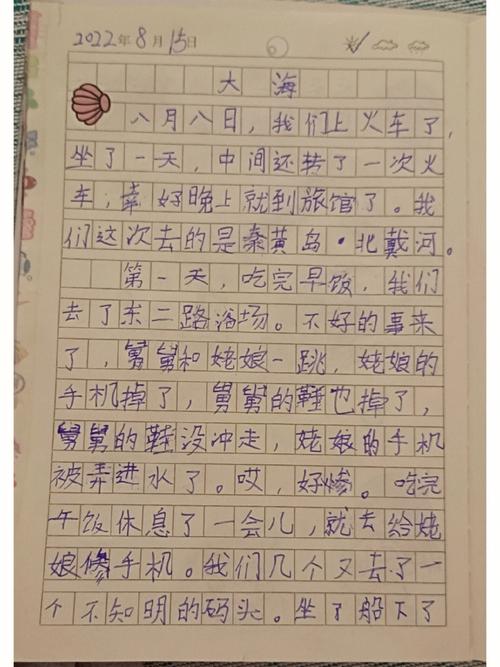 2022年8月15日
大海
八月八日，我们上火车了，
坐了一天，中间还转了一次火
车；幸好晚上就到旅馆了。我
们这次去的是秦黄岛·北戴河。
第一天，吃完早饭，我们
去了东二路浴场。不好的事来
了，舅舅和姥娘一跳，姥娘的
手机掉了，舅舅的鞋也掉了，
舅舅的鞋没冲走，姥娘的手机
被弄进水了。哎，好惨。吃完
午饭休息了一会儿，就去给姥
娘修手机。我们几个又去了一
个不知明的码头。坐了船下了